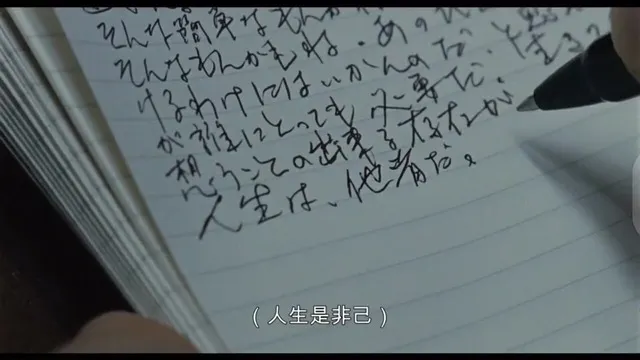 そんな簡単なもんか
そんなもんかもね。あの
けるわけにはいかんのだ、と思
が誰にとっても必要だ。
想うことの出来る存在が
人生は、他者だ。
(人生是非己)